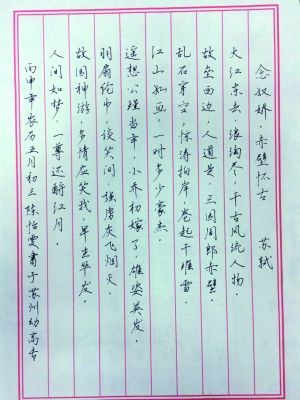 念奴娇·赤壁怀古 苏轼
大江东去,浪淘尽,千古风流人物.
故垒西边,人道是 三国周郎赤壁.
乱石穿空,惊涛拍岸,卷起千堆雪.
江山如画,一时多少豪杰.
遥想公瑾当年,小乔初嫁了,雄姿英发.
羽扇纶巾,谈笑间,强虏灰飞烟灭.
故国神游,多情应笑我,早生华发.
人间如梦,一尊还酹江月.
丙申年农历五月初三陈怡雯书于苏州幼高专